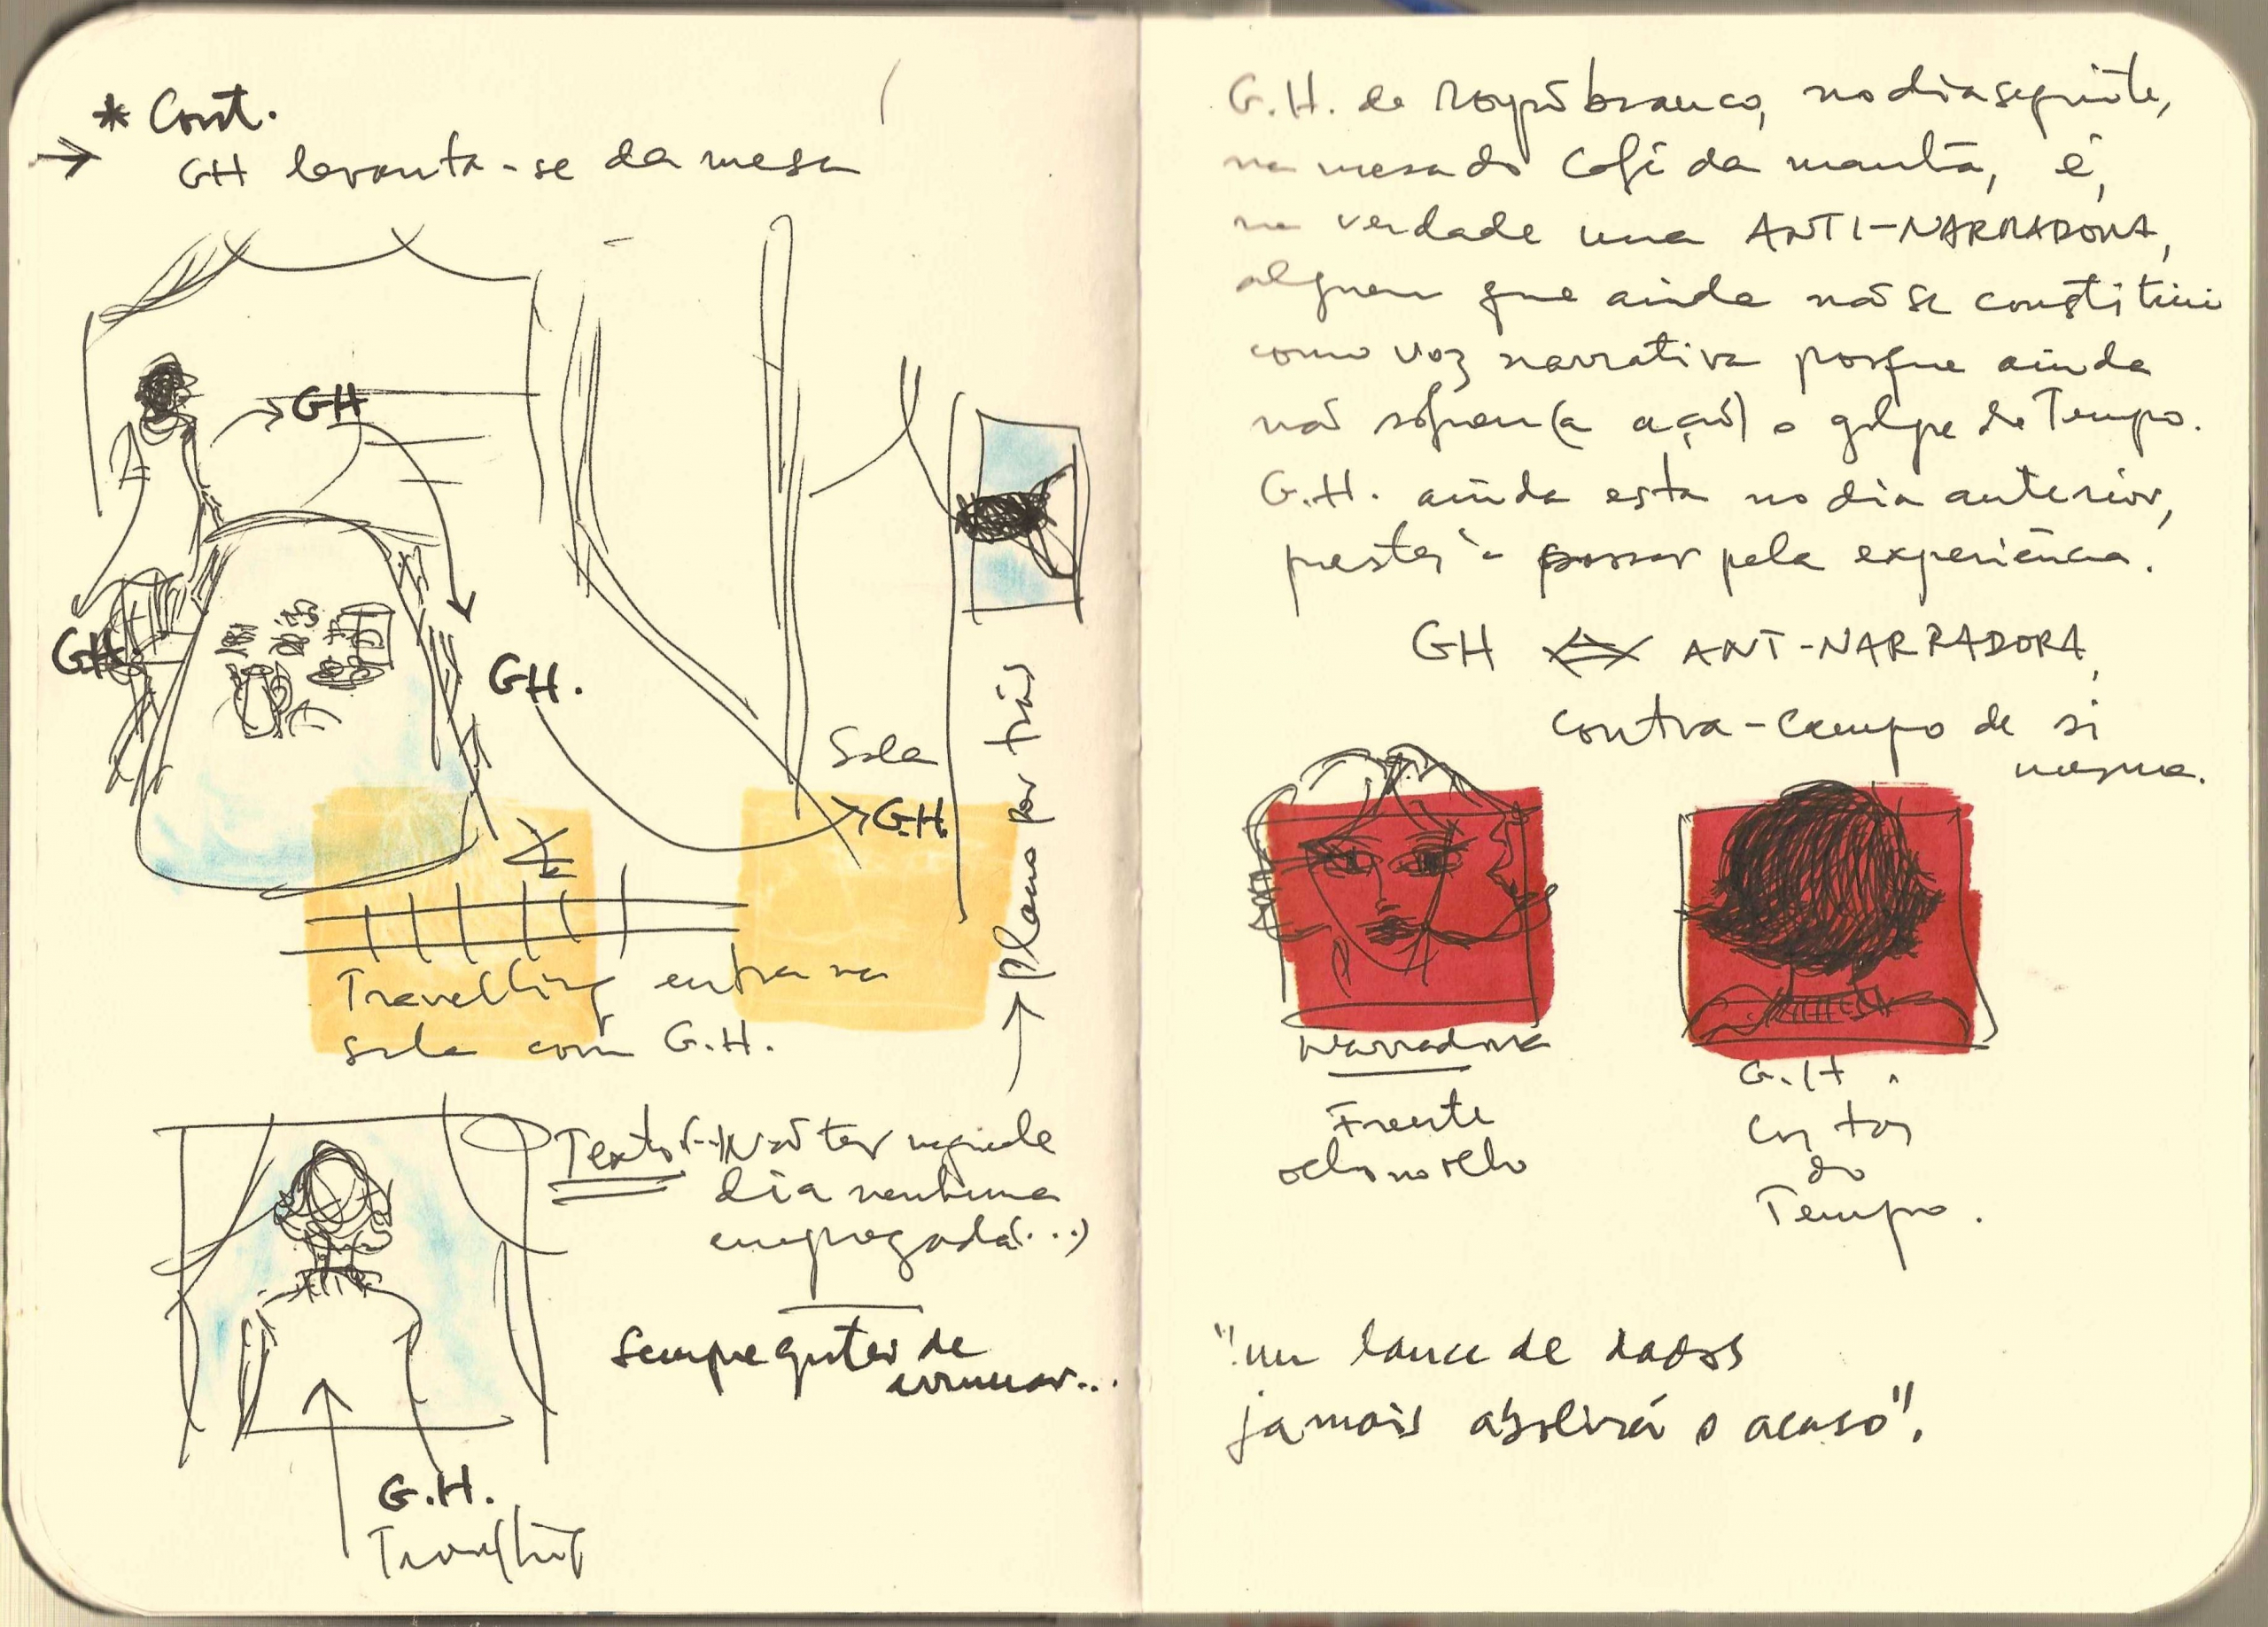 * Cont.
→ GH levanta-se da mesa
→ GH
GH
GH.
Sala
→ G.H.
plano por trás
Travelling entra na
sala com G.H.
Texto: -- Não ter naquele
dia nenhuma
empregada (...)
Sempre gostei de
arrumar...
G.H.
Travelling
G.H. de roupão branco, no dia seguinte,
na mesa do café da manhã, é,
na verdade uma ANTI-NARRADORA,
alguem que ainda não se constitui
como voz narrativa porque ainda
não sofreu (a ação) o golpe do Tempo.
G.H. ainda esta no dia anterior,
prestes à passar pela experiência.
GH ⇔ ANT-NARRADORA,
contra-campo de si
mesma.
Narradora
Frente
olho no olho
G.H.
Costas
do
Tempo.
"um lance de dados
jamais abolirá o acaso".